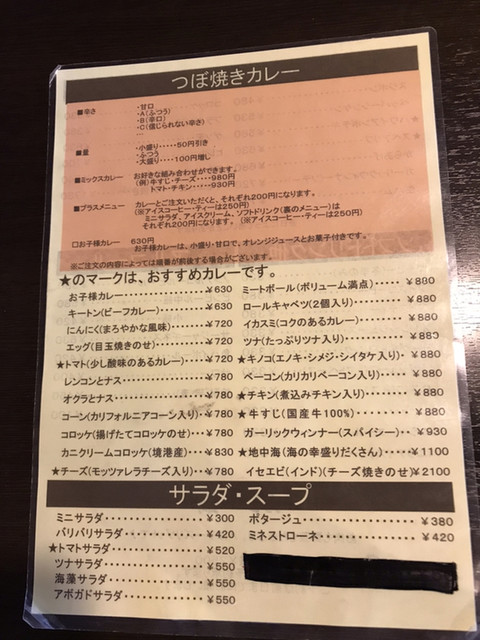 つぼ焼きカレー
■辛さ ・甘口
・A(ふつう)
・B(辛口)
・C(信じられない辛さ)
■量 ・小盛り・・・・・50円引き
・ふつう
・大盛り・・・・100円増し
■ミックスカレー お好きな組み合わせができます。
(例)牛すじ・チーズ・・・・980円
トマト・チキン・・・・・930円
■プラスメニュー カレーとご注文いただくと、それぞれ200円になります。
(※アイスコーヒー・ティーは250円)
ミニサラダ、アイスクリーム、ソフトドリンク(裏のメニュー)は
それぞれ200円になります。(※アイスコーヒー・ティーは250円)
□お子様カレー 630円
お子様カレーは、小盛り・甘口で、オレンジジュースとお菓子付きです。
※ご注文の内容によっては順番が前後する場合がございます。
★のマークは、おすすめカレーです。
お子様カレー ¥630
キートン(ビーフカレー) ¥630
にんにく(まろやかな風味) ¥720
エッグ(目玉焼きのせ) ¥720
★トマト(少し酸味のあるカレー) ¥780
レンコンとナス ¥780
オクラとナス ¥780
コーン(カリフォルニアコーン入り) ¥780
コロッケ(揚げたてコロッケのせ) ¥780
カニクリームコロッケ(境港産) ¥830
★チーズ(モッツァレラチーズ入り) ¥780
ミートボール(ボリューム満点) ¥880
ロールキャベツ(2個入り) ¥880
イカスミ(コクのあるカレー) ¥880
ツナ(たっぷりツナ入り) ¥880
★キノコ(エノキ・シメジ・シイタケ入り) ¥880
ベーコン(カリカリベーコン入り) ¥880
★チキン(煮込みチキン入り) ¥880
★牛すじ(国産牛100%) ¥880
ガーリックウィンナー(スパイシー) ¥930
★地中海(海の幸盛りだくさん) ¥1100
イセエビ(インド)(チーズ焼きのせ) ¥2100
サラダ・スープ
ミニサラダ ¥300
バリバリサラダ ¥420
★トマトサラダ ¥520
ツナサラダ ¥550
海藻サラダ ¥550
アボガドサラダ ¥550
ポタージュ ¥380
ミネストローネ ¥420